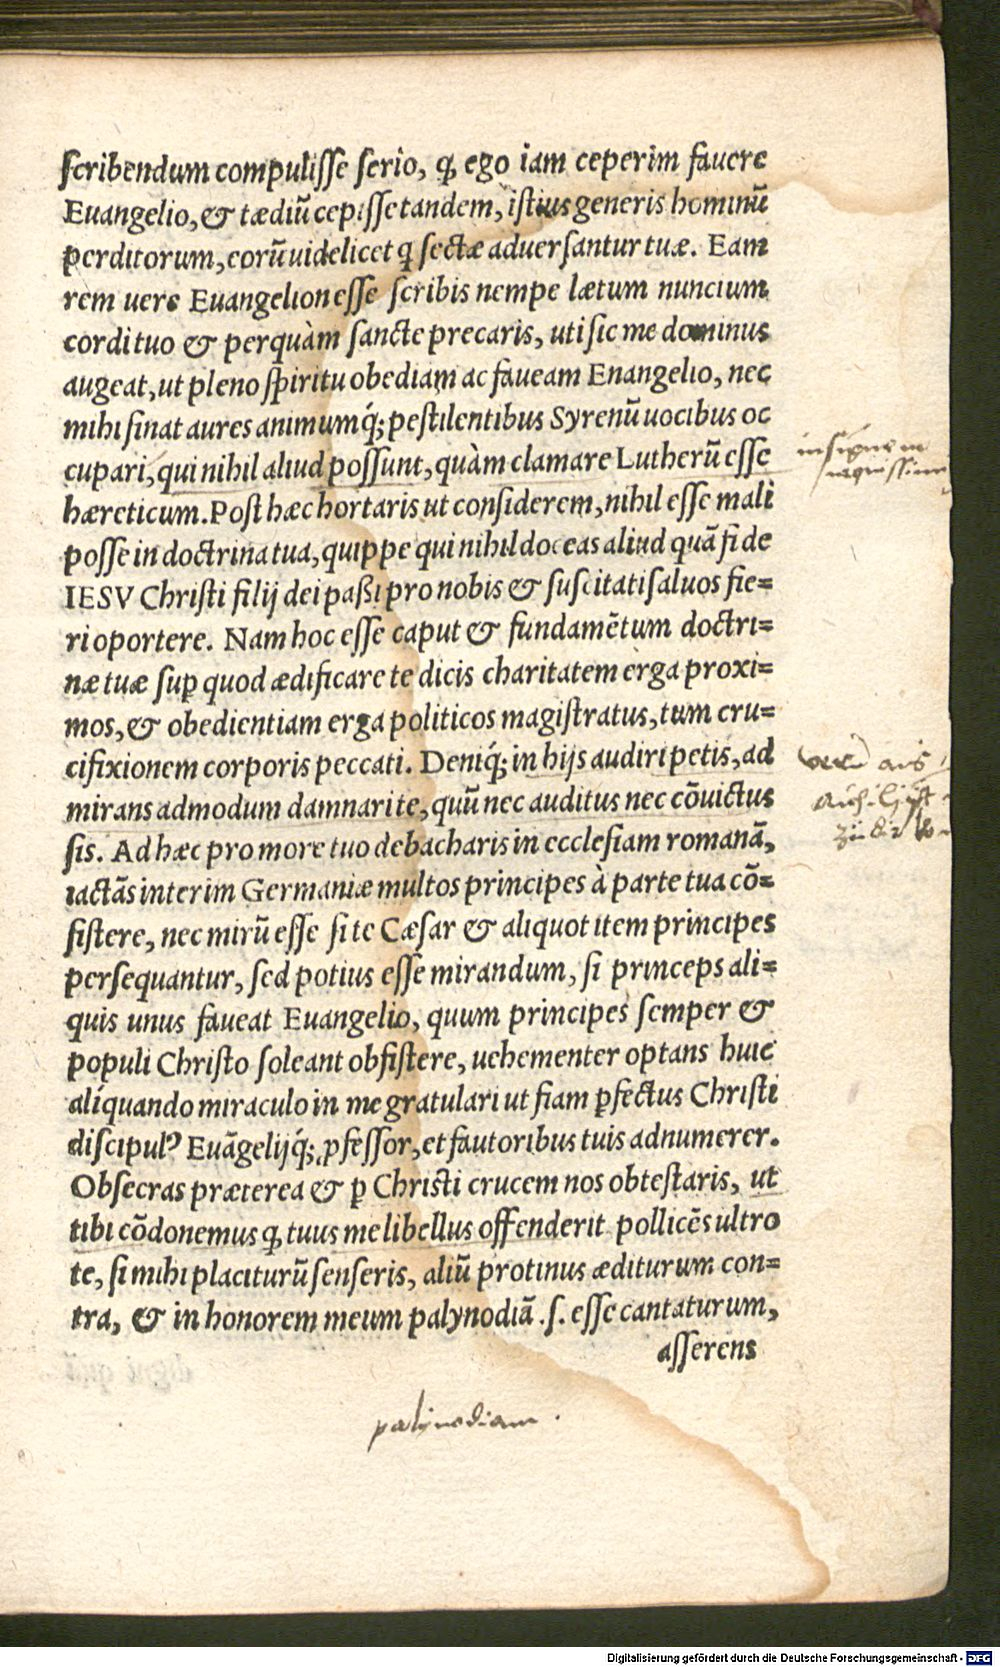 ſcribendum compuliſſe ſerio, ꝙ ego iam ceperim fauere
Euangelio, & tædiū cepiſſe tandem, iſtius generis hominū
perditorum, eorū uidelicet q̃ ſectæ aduerſantur tuæ. Eam
rem uere Euangelion eſſe ſcribis nempe lætum nuncium
cordi tuo & perquàm ſancte precaris, uti ſic me dominus
augeat, ut pleno ſpiritu obediam ac faueam Enangelio, nec
mihi ſinat aures animumq́; peſtilentibus Syrenū uocibus oc
cupari, qui nihil aliud poſſunt, quàm clamare Lutherū eſſe
hæreticum. Poſt hæc hortaris ut conſiderem, nihil eſſe mali
poſſe in doctrina tua, quippe qui nihil doceas aliud quã fide
IESV Chriſti filij dei paßi pro nobis & ſuſcitati ſaluos fie=
ri oportere. Nam hoc eſſe caput & fundamẽtum doctri=
næ tuæ ſuꝑ quod ædificare te dicis charitatem erga proxi=
mos, & obedientiam erga politicos magiſtratus, tum cru=
cifixionem corporis peccati. Deniq́; in hijs audiri petis, ad
mirans admodum damnari te, quū nec auditus nec cõuictus
ſis. Ad hæc pro more tuo debacharis in eccleſiam romanã,
iactãs interim Germaniæ multos principes à parte tua cõ=
ſiſtere, nec mirū eſſe ſi te Cæſar & aliquot item principes
perſequantur, ſed potius eſſe mirandum, ſi princeps ali=
quis unus faueat Euangelio, quum principes ſemper &
populi Chriſto ſoleant obſiſtere, uehementer optans huic
aliquando miraculo in me gratulari ut fiam ꝑfectus Chriſti
diſcipulꝰ Euãgelijq́; ꝓfeſſor, et fautoribus tuis adnumerer.
Obſecras præterea & ꝑ Chriſti crucem nos obteſtaris, ut
tibi cõdonemus ꝙ tuus me libellus offenderit pollicẽs ultro
te, ſi mihi placiturū ſenſeris, aliū protinus æditurum con=
tra, & in honorem meum palynodiã .ſ. eſſe cantaturum,
aſſerens
palynodiam.
Digitalisierung gefördert durch die Deutsche Forschungsgemeinschaft - DFG